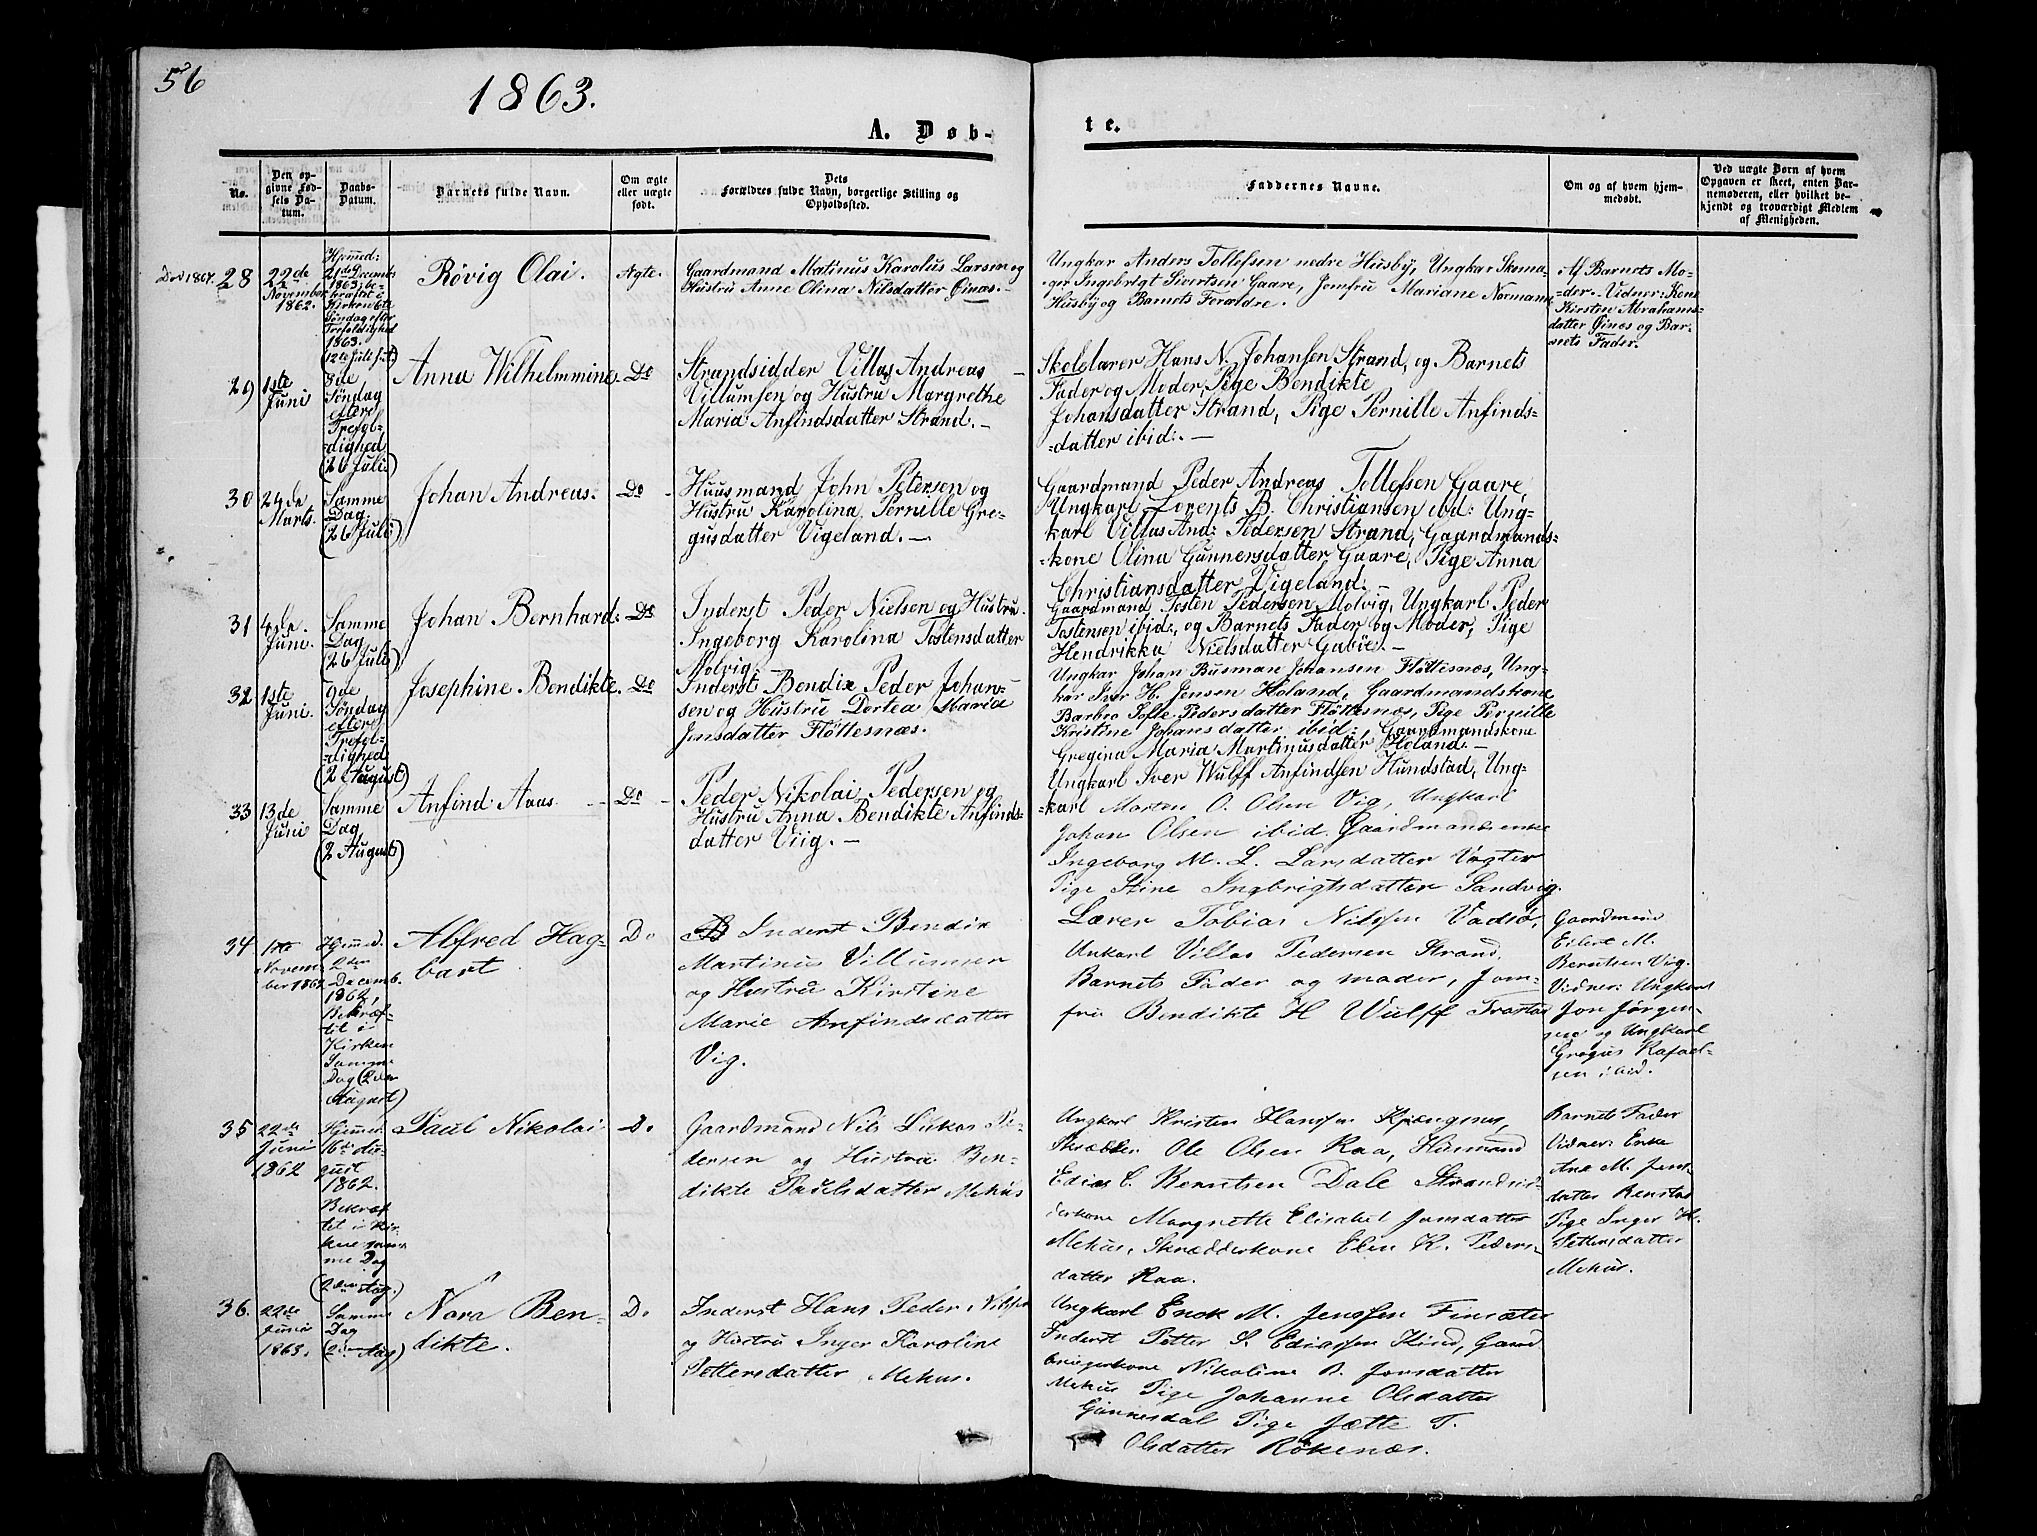 56
1863.
A. Døb-
te.
No.
Den op-
givne Fød-
sels Da-
tum.
Daabs-
Datum.
Barnets fulde Navn.
Om ægte
eller uægte
født.
Dets
Forældres fulde Navn, borgerlige Stilling og
Opholdssted.
Faddernes Navne.
Om og af hvem hjem-
medøbt.
Ved uægte Børn af hvem
Opgaven er skeet, enten Bar-
nemoderen, eller hvilket be-
kjendt og troværdigt Medlem
af Menigheden.
28
22de
November
1862.
Hjemmed:
21de Decembr
1863; be-
kræftet i
Kirken 6te
Søndag efter
Trefoldighed
1863.
(12te Juli)
Rövig Olai.
Ægte.
Gaardmand Matinus Karolus Larsen og
Hustru Anne Olina Nilsdatter Öinæs.-
Ungkar Anders Tollefsen nedre Husby, Ungkar Skoma-
ger Ingebrigt Sivertsen Gaare, Jomfru Mariane Normann
Husby og Barnets Forældre.
Af Barnets Mo-
der.- Vidner: Kone
Kirsten Abrahams-
datter Öines og Bar-
nets Fader.
29
1ste
Juni
8de
Søndag
efter
Trefol-
dighed
(26 Juli)
Anna Wilhelmmine.
Do
Strandsidder Villas Andreas
Villumsen og Hustru Margrethe
Maria Anfindsdatter Strand.-
Skolelærer Hans N. Johansen Strand, og Barnets
Fader og Moder, Pige Bendikte
Johansdatter Strand, Pige Pernille Anfinds-
datter ibid:.-
30
24de
Marts.
Samme
Dag
(26 Juli)
Johan Andreas.
Do
Huusmand John Petersen og
Hustru Karolina Pernille Gre-
gusdatter Vigeland.-
Gaardmand Peder Andreas Tollefsen Gaare,
Ungkarl Lorents B. Christiansen ibd: Ung-
karl Villas And: Pedersen Strand, Gaardmands-
kone Olina Gunnersdatter Gaare, Pige Anna
Christiansdatter Vigeland.-
31
4de
Juni.
Samme
Dag
(26 Juli)
Johan Bernhard:
Do
Inderst Peder Nielsen og Hustru
Ingeborg Karolina Tostensdatter
Molvig.
Gaardmand Tosten Pedersen Molvig, Ungkarl Peder
Tostensen ibid:, og Barnets Fader og Moder, Pige
Hendrikka Nielsdatter Gaböe.-
32
1ste
Juni.
9de
Søndag
efter
Trefol-
dighed
(2 August)
Josephine Bendikte.
Do
Inderst Bendix Peder Johan-
sen og Hustru Dortea Maria
Jensdatter Flöttesnæs.
Ungkar Johan Busman Johansen Flöttesnæs, Ung-
kar Iver H. Jensen Höland, Gaardmandskone
Barbro Sofie Pedersdatter Flöttesnæs, Pige Pernille
Kristine Johansdatter ibid:, Gaardmandskone
Gregina Maria Martinusdatter Höland.-
33
13de
Juni
Samme
Dag,
(2 August)
Anfind Aaas.
Do
Peder Nikolai Pedersen og
Hustru Anna Bendikte Anfinds-
datter Viig.-
Ungkarl Iver Wulff Anfindsen Hundstad, Ung-
karl Morten O. Olsen Vig, Ungkarl
Johan Olsen ibid. Gaardmandsenke
Ingeborg M. L. Larsdatter Vagter
Pige Stine Ingbrigtsdatter Sandvig.
34
1ste
Novem-
ber 1862
Hjemmed.
2den
Decemb.
1862,
Bekræf-
tet i
Kirken
Samme
Dag (2den
August)
Alfred Hag-
bart
Do
Inderst Bendix
Martinus Villumsen
og Hustru Kirstine
Marie Anfindsdatter
Vig.
Lærer Tobias Nilssen Vadsö,
Unkarl Villas Pedersen Strand,
Barnets Fader og moder, Jom-
fru Bendikte H Wulff Trastad
Gaardmand
Eilert M.
Berntsen Vig.
Vidner: Ungkarl
Jon Jørgen-
sen og Ungkarl
Gregus Rafael-
sen ibid.
35
22de
Juni
1862
Hjemmed.
16de Au-
gust
1862.
Bekræf-
tet i Kir-
ken sam-
me Dag
(2den Aug.)
Paul Nikolai
Do
Gaardmand Nils Lukas Pe-
dersen og Hustru Ben-
dikte Paulsdatter Mehus
Ungkarl Kristen Hanssen Kjængsnes,
Skrædder Ole Olsen Raa, Husmand
Edias C. Berntsen Dale Strandsid-
derkone Margrette Elisabet Jonsdatter
Mehus, Skrædderkone Elen K. Peders-
datter Raa.
Barnets Fader
Vidner: Enke
Ane M. Jens-
datter Renstad
Pige Inger K.
Pettersdatter
Mehus.
36.
22de
Juni
1863.
Samme
Dag
(2den Aug)
Nora Ben-
dikte.
Do
Inderst Hans Peder Nilssen
og Hustru Inger Karoline
Pettersdatter Mehus.
Ungkarl Enok M. Jenssen Finsæter
Inderst Petter S. Ediassen Kind, Gaard
brugerkone Nikoline B. Jonsdatter
Mehus Pige Johanne Olsdatter
Gunnesdal Pige Jætte T.
Olsdatter Rökenæs.